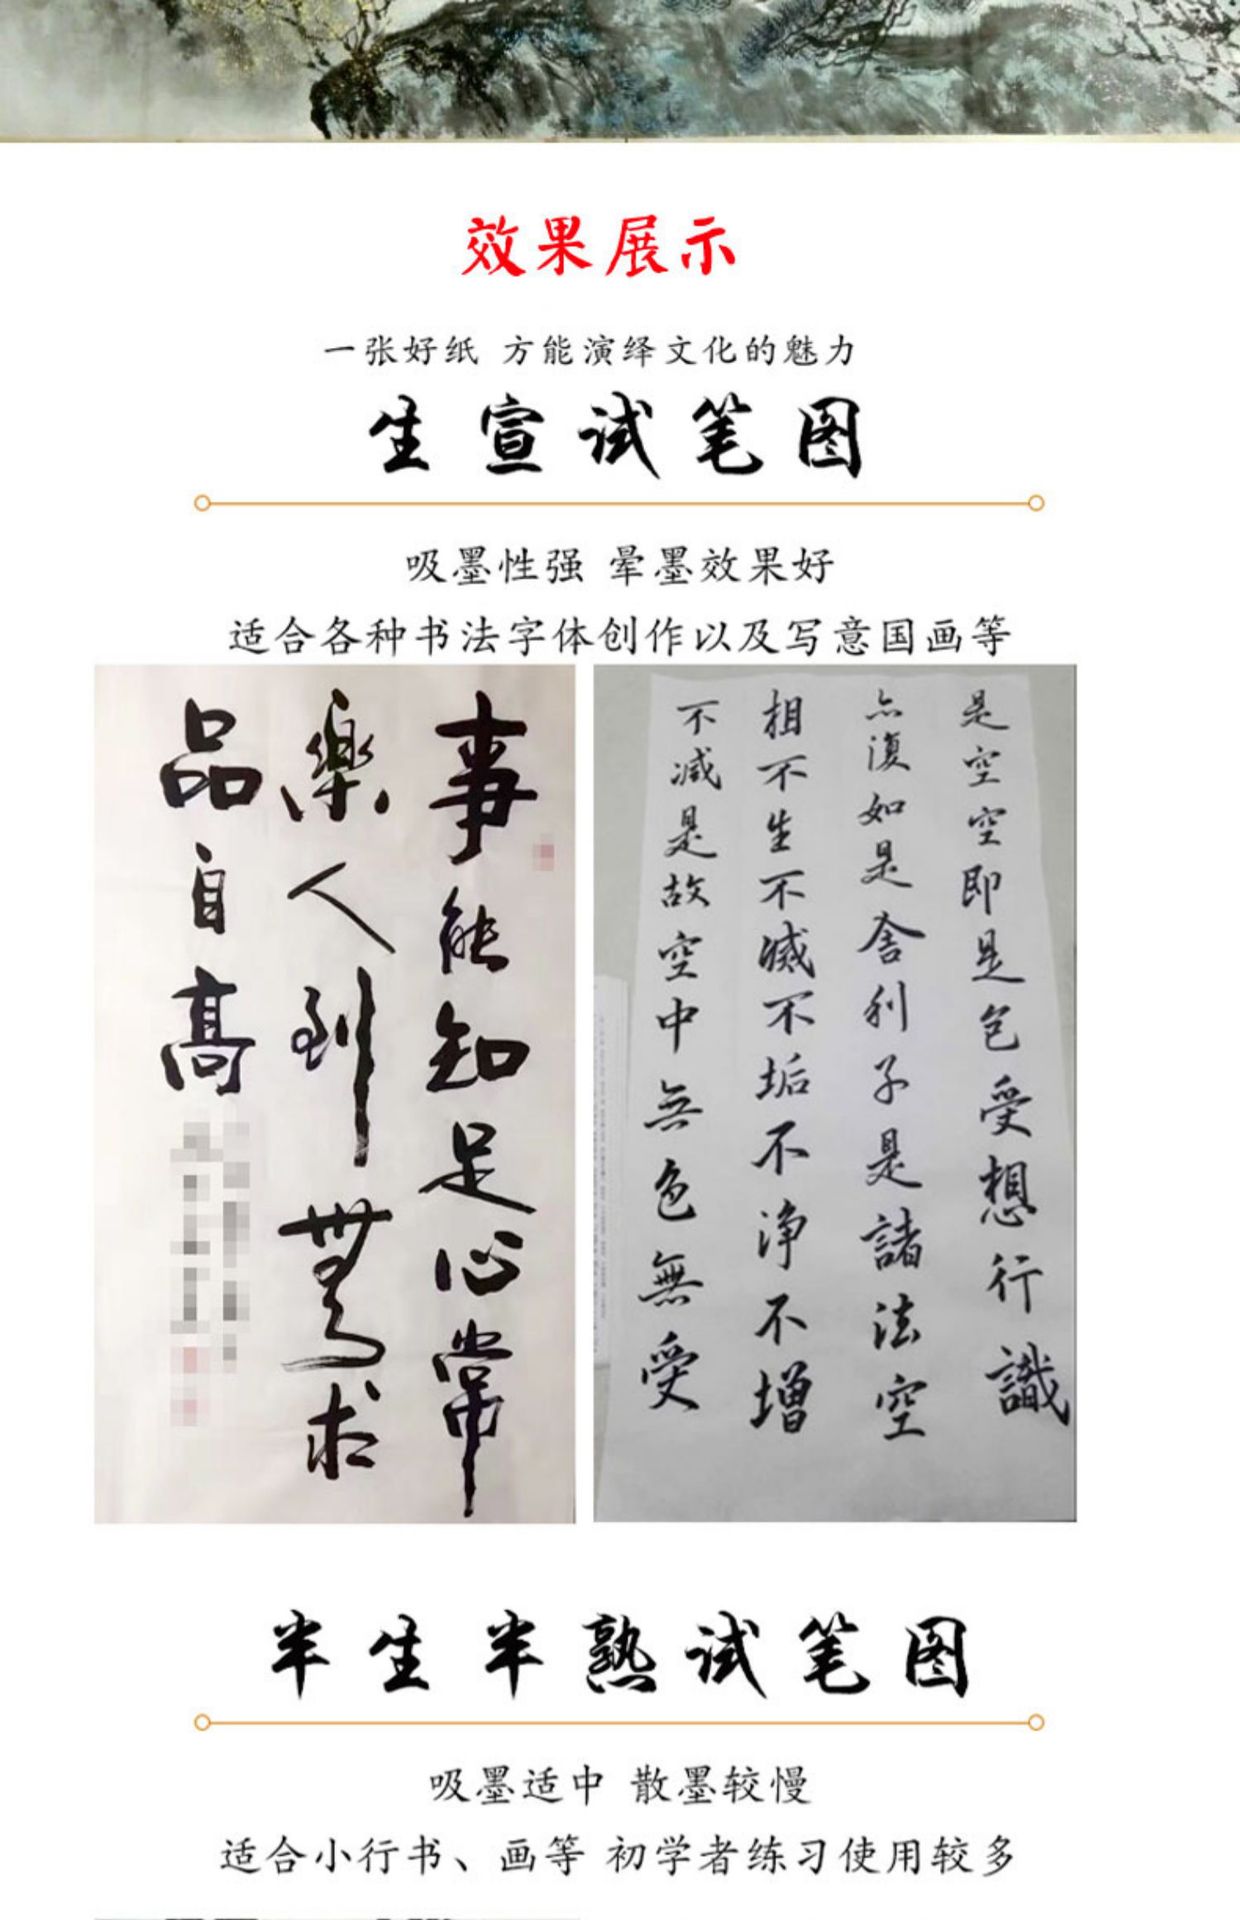 效果展示
一张好纸 方能演绎文化的魅力
生宣试笔图
吸墨性强 晕墨效果好
适合各种书法字体创作以及写意国画等
事能知足心常
樂人到無求
品自高
是空空即是色受想行識
亦復如是舍利子是諸法空
相不生不滅不垢不净不增
不减是故空中無色無受
半生半熟试笔图
吸墨适中 散墨较慢
适合小行书、画等 初学者练习使用较多